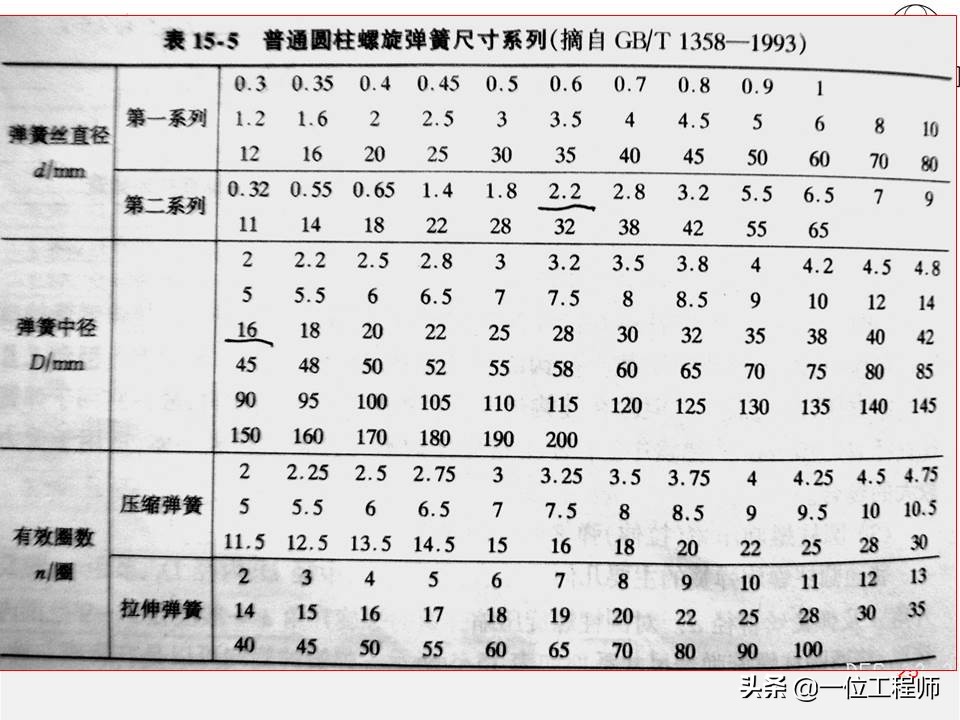 表 15-5 普通圆柱螺旋弹簧尺寸系列(摘自 GB/T 1358—1993)
弹簧丝直径
d/mm
第一系列
0.3 0.35 0.4 0.45 0.5 0.6 0.7 0.8 0.9 1
1.2 1.6 2 2.5 3 3.5 4 4.5 5 6 8 10
12 16 20 25 30 35 40 45 50 60 70 80
第二系列
0.32 0.55 0.65 1.4 1.8 2.2 2.8 3.2 5.5 6.5 7 9
11 14 18 22 28 32 38 42 55 65
弹簧中径
D/mm
2 2.2 2.5 2.8 3 3.2 3.5 3.8 4 4.2 4.5 4.8
5 5.5 6 6.5 7 7.5 8 8.5 9 10 12 14
16 18 20 22 25 28 30 32 35 38 40 42
45 48 50 52 55 58 60 65 70 75 80 85
90 95 100 105 110 115 120 125 130 135 140 145
150 160 170 180 190 200
有效圈数
n/圈
压缩弹簧
2 2.25 2.5 2.75 3 3.25 3.5 3.75 4 4.25 4.5 4.75
5 5.5 6 6.5 7 7.5 8 8.5 9 9.5 10 10.5
11.5 12.5 13.5 14.5 15 16 18 20 22 25 28 30
拉伸弹簧
2 3 4 5 6 7 8 9 10 11 12 13
14 15 16 17 18 19 20 22 25 28 30 35
40 45 50 55 60 65 70 80 90 100
头条 @一位工程师